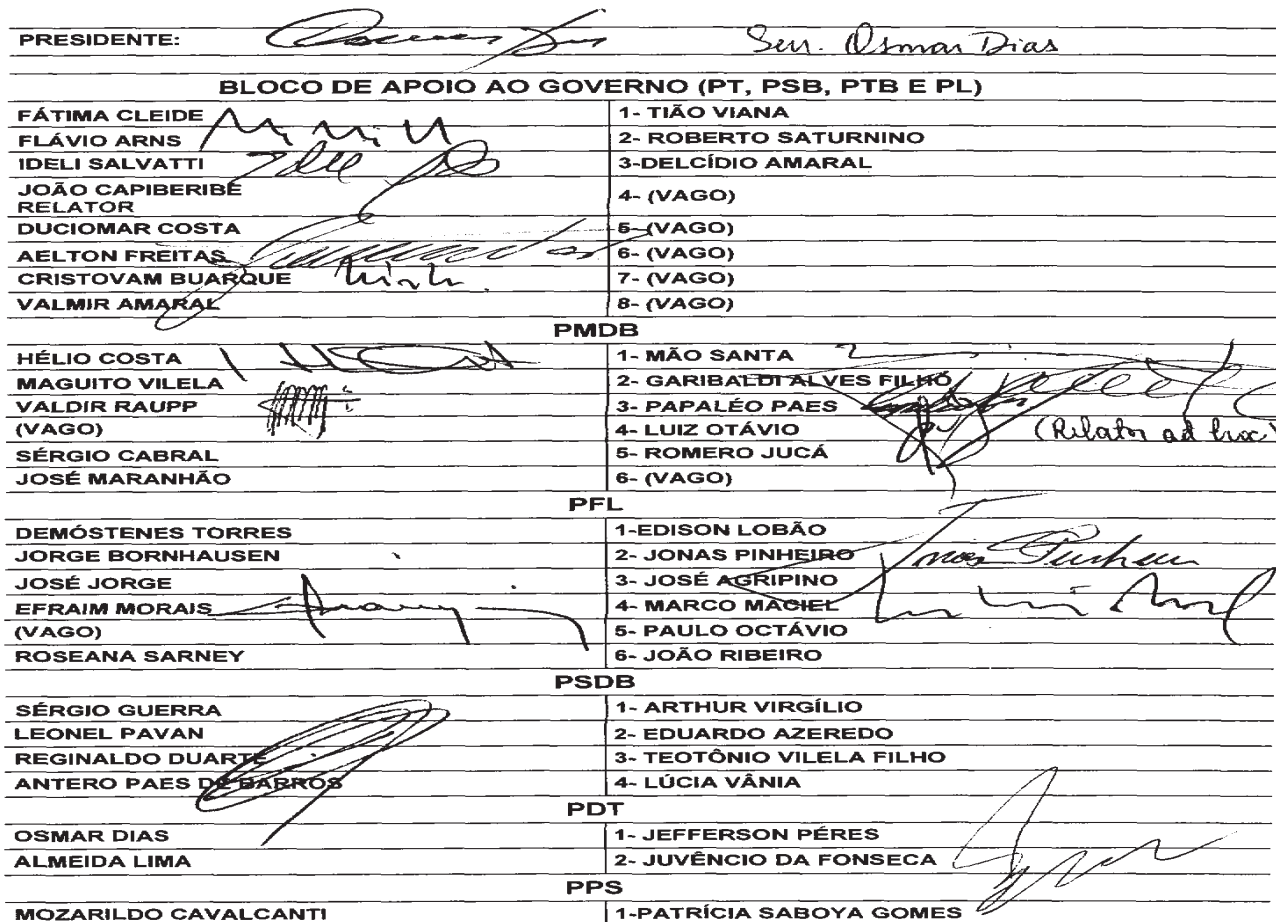 PRESIDENTE: Sen. Osmar Dias
BLOCO DE APOIO AO GOVERNO (PT, PSB, PTB E PL)
FÁTIMA CLEIDE 1- TIÃO VIANA
FLÁVIO ARNS 2- ROBERTO SATURNINO
IDELI SALVATTI 3-DELCÍDIO AMARAL
JOÃO CAPIBERIBE
RELATOR 4- (VAGO)
DUCIOMAR COSTA 5-(VAGO)
AELTON FREITAS 6- (VAGO)
CRISTOVAM BUARQUE 7- (VAGO)
VALMIR AMARAL 8- (VAGO)
PMDB
HÉLIO COSTA 1- MÃO SANTA
MAGUITO VILELA 2- GARIBALDI ALVES FILHO
VALDIR RAUPP 3- PAPALÉO PAES
(VAGO) 4- LUIZ OTÁVIO (Relator ad hoc)
SÉRGIO CABRAL 5- ROMERO JUCÁ
JOSÉ MARANHÃO 6- (VAGO)
PFL
DEMÓSTENES TORRES 1-EDISON LOBÃO
JORGE BORNHAUSEN 2- JONAS PINHEIRO Jonas Pinheiro
JOSÉ JORGE 3- JOSÉ AGRIPINO
EFRAIM MORAIS 4- MARCO MACIEL
(VAGO) 5- PAULO OCTÁVIO
ROSEANA SARNEY 6- JOÃO RIBEIRO
PSDB
SÉRGIO GUERRA 1- ARTHUR VIRGÍLIO
LEONEL PAVAN 2- EDUARDO AZEREDO
REGINALDO DUARTE 3- TEOTÔNIO VILELA FILHO
ANTERO PAES DE BARROS 4- LÚCIA VÂNIA
PDT
OSMAR DIAS 1- JEFFERSON PÉRES
ALMEIDA LIMA 2- JUVÊNCIO DA FONSECA
PPS
MOZARILDO CAVALCANTI 1-PATRÍCIA SABOYA GOMES